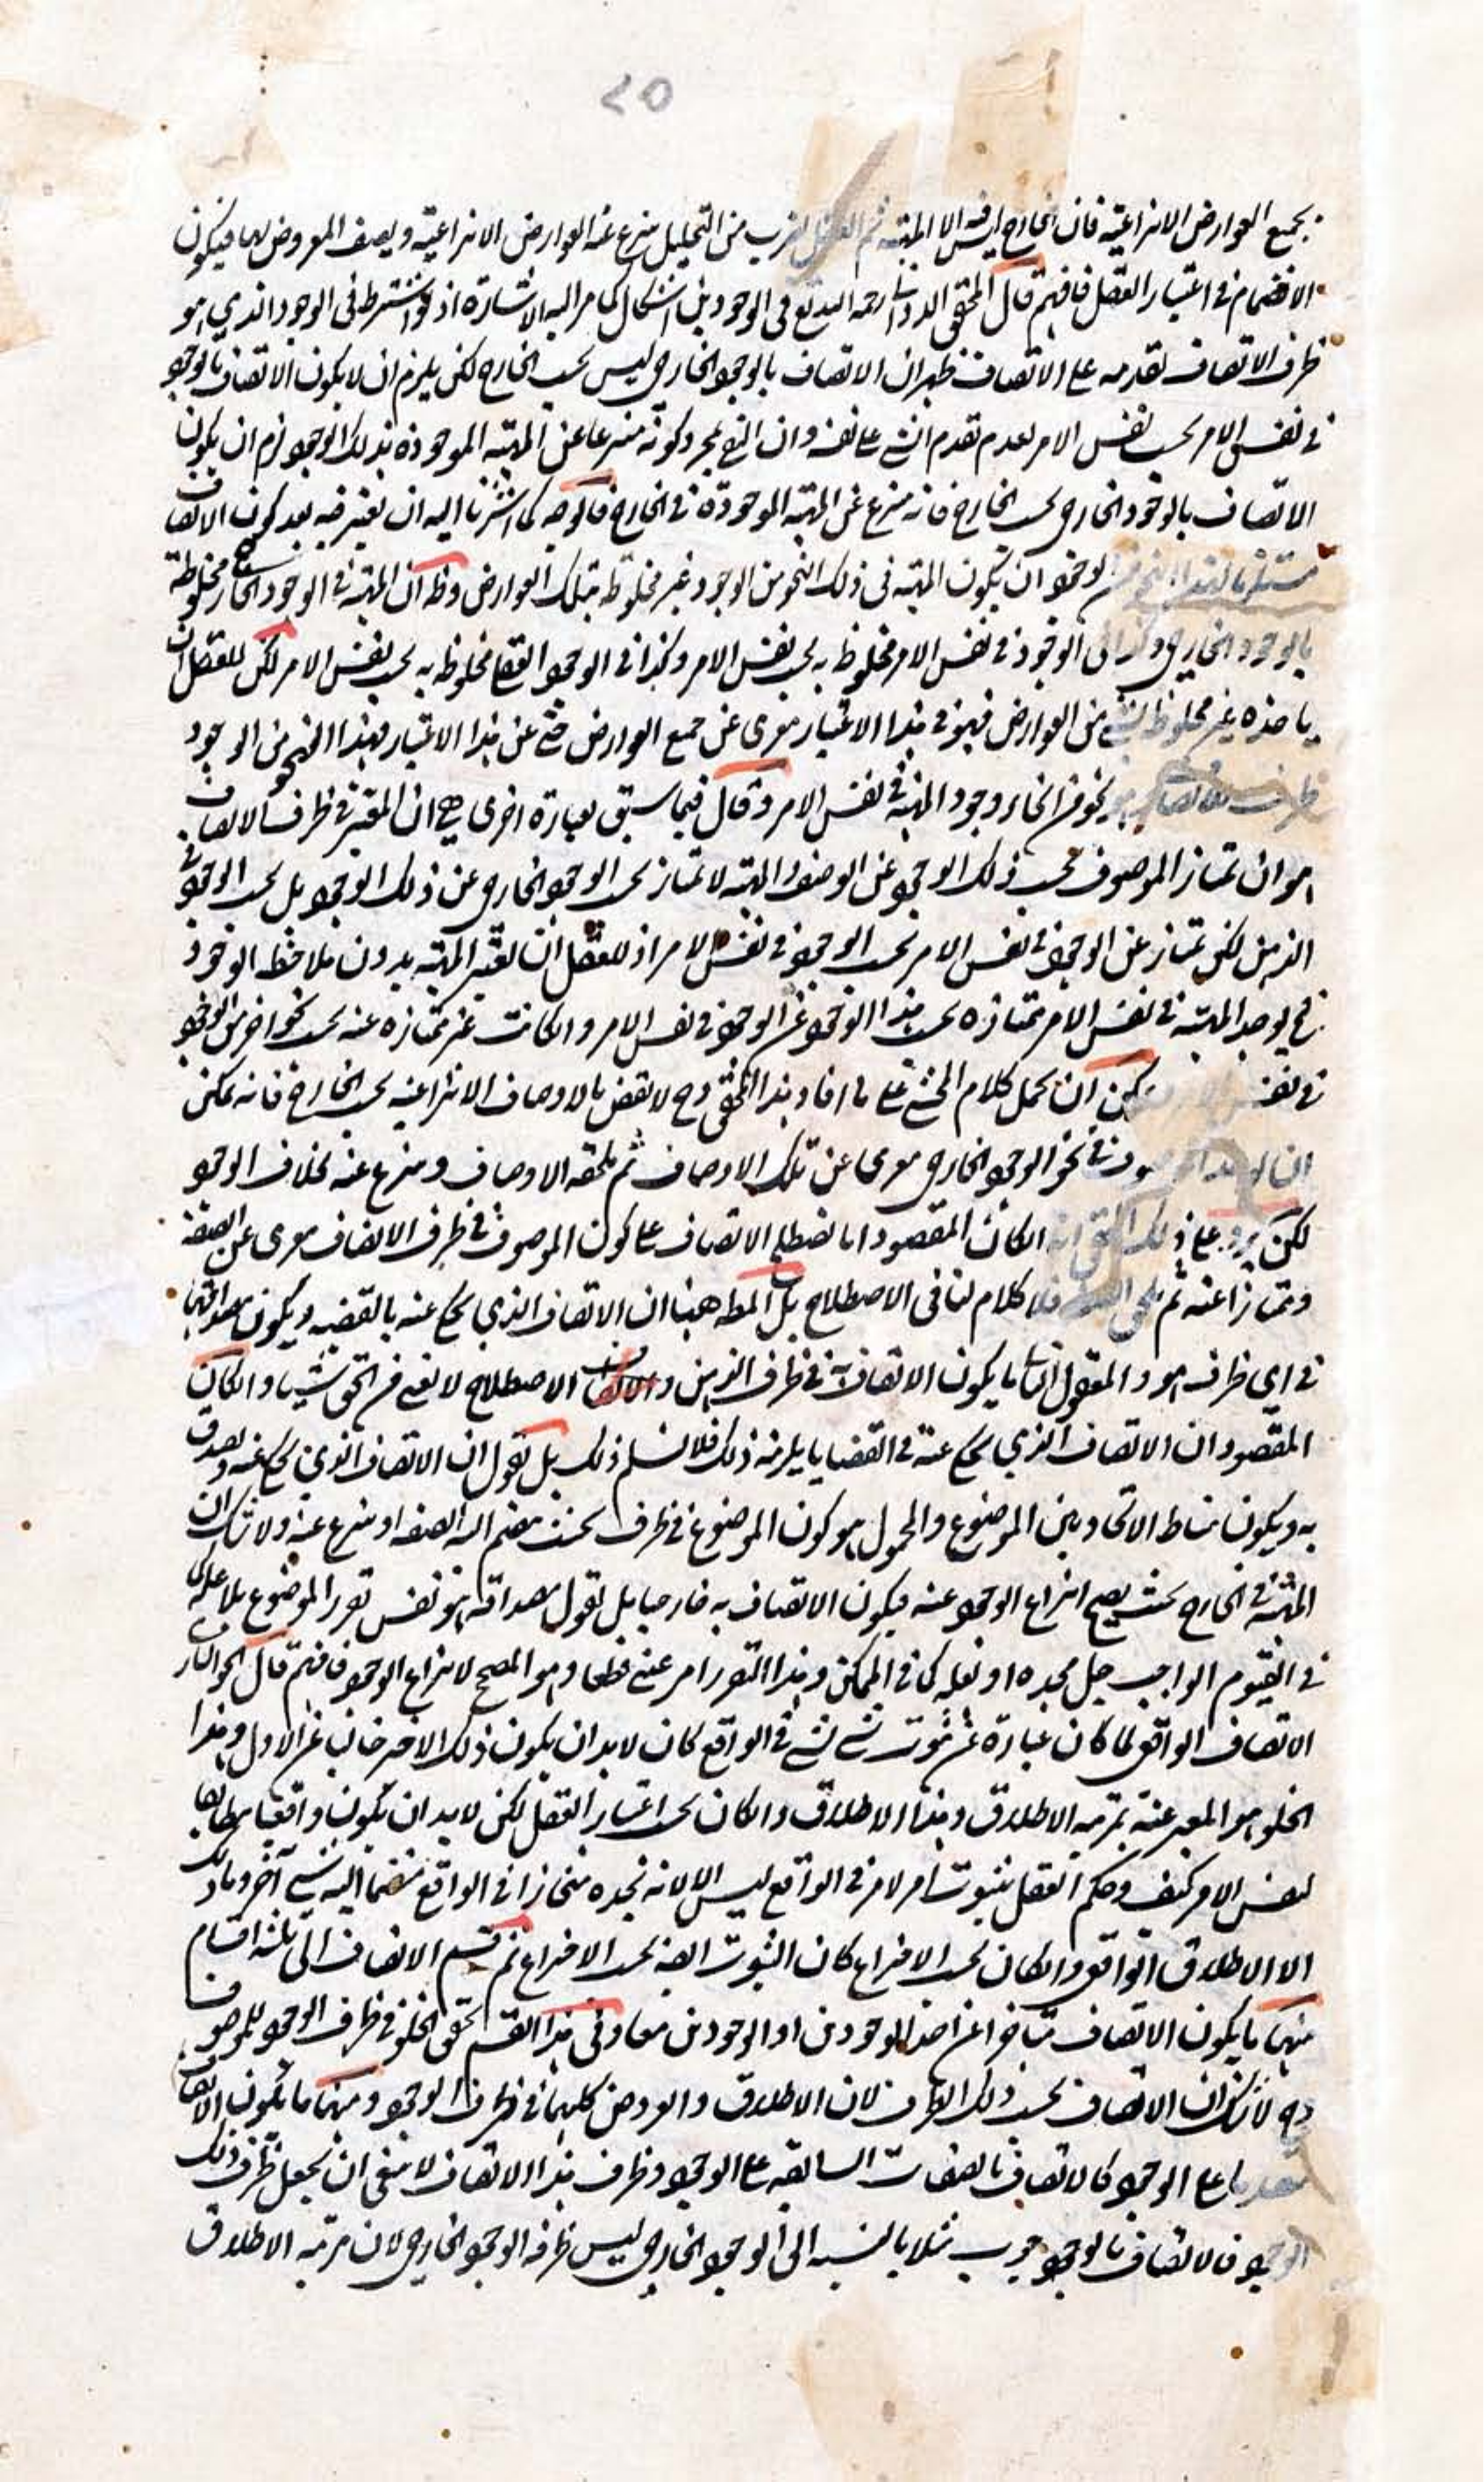 ٢٥
بجميع العوارض الانتزاعية فان الخارج ليس فيه الا المهية ثم العقل بضرب من التحليل ينتزع عنه العوارض الانتزاعية ويصف المعروض بها فيكون
الانضمام في اعتبار العقل فافهم قال المحقق الدواني رحمه الله تع في الوجودين اشكال كما مر اليه الاشارة اذ لو اشترط في الوجود الذي هو
ظرف الاتصاف تقدمه على الاتصاف ظهر ان الاتصاف بالوجود الخارجي ليس بحسب الخارج لكن يلزم ان لا يكون الاتصاف بالوجود
في نفس الامر بحسب نفس الامر لعدم تقدم الشئ على نفسه وان اكتفى بمجرد كونه منتزعا عن المهية الموجودة بذلك الوجود لزم ان يكون
الاتصاف بالوجود الخارجي بحسب الخارج فانه منتزع عن المهية الموجودة في الخارج فالوجه كما اشرنا اليه ان يعتبر فيه بعد كون الاتصاف
الوجود ان يكون المهية في ذلك النحو من الوجود غير مخلوطة بتلك العوارض وظ ان المهية في الوجود الخارجي مخلوطة
بالوجود الخارجي وكذا في الوجود في نفس الامر مخلوطة به بحسب نفس الامر وكذا في الوجود العقلي مخلوطة به بحسب نفس الامر لكن للعقل ان
ياخذه غير مخلوط بشئ من العوارض فهو في هذا الاعتبار معرى عن جميع العوارض حتى عن هذا الاعتبار فهذا النحو من الوجود
نحو من انحاء وجود المهية في نفس الامر وقال فيما سبق بعبارة اخرى هي ان المعتبر في ظرف الاتصاف
هو ان تمتاز الموصوف بحسب ذلك الوجود عن الوصف والمهية لا تمتاز بحسب الوجود الخارجي عن ذلك الوجود بل بحسب الوجود في
الذهن لكن تمتاز عن الوجود في نفس الامر بحسب الوجود في نفس الامر اذ للعقل ان يعتبر المهية بدون ملاحظة الوجود
فح يوجد المهية في نفس الامر ممتازة بحسب هذا الوجود عن الوجود في نفس الامر وان كانت غير ممتازة عنه بحسب نحو اخر من الوجود
في نفس الامر يمكن ان يحمل كلام المحشي على ما افاد هذا المحقق وح لا نقض بالاوصاف الانتزاعية بحسب الخارج فانه يمكن
في نحو الوجود الخارجي معرى عن تلك الاوصاف ثم يلحقه الاوصاف وينتزع عنه بخلاف الوجود
لكن يرد على ذلك المحقق انه ان كان المقصود انا نصطلح الاتصاف على كون الموصوف في ظرف الاتصاف معرى عن الصفة
وممتازا عنه ثم فلا كلام لنا في الاصطلاح بل المط ههنا ان الاتصاف الذي يحكى عنه بالقضية ويكون مصداقها
في اي ظرف هو والمعقول الثاني ما يكون الاتصاف به في ظرف الذهن و الاصطلاح لا يغني من الحق شيئا وان كان
المقصود ان الاتصاف الذي يحكى عنه في القضايا يلزمه ذلك فلا نسلم ذلك بل نقول ان الاتصاف الذي يحكى عنه ويصدق
به ويكون مناط الاتحاد بين الموضوع والمحمول هو كون الموضوع في ظرف بحيث ينضم اليه الصفة او ينتزع عنه ولا شك ان
المهية في الخارج بحيث يصح انتزاع الوجود عنه فيكون الاتصاف به خارجيا بل نقول مصداقه هو نفس تقرر الموضوع بلا علة كما
في القيوم الواجب جل مجده او بعلة كما في الممكن وهذا التقرر امر عيني قطعا وهو المصحح لانتزاع الوجود فافهم قال
الاتصاف الواقعي لما كان عبارة عن ثبوت شئ لشئ في الواقع كان لابد ان يكون ذلك الاخر خاليا عن الاول وهذا
الخلو هو المعبر عنه بمرتبة الاطلاق وهذا الاطلاق وان كان بحسب اعتبار العقل لكن لابد ان يكون واقعيا مطابقا
لنفس الامر كيف وحكم العقل بثبوت امر لامر في الواقع ليس الا لانه نجده منحازا في الواقع منضما اليه شئ آخر وما ذلك
الا الاطلاق الواقعي وان كان بحسب الاختراع كان الثبوت ايضا بحسب الاختراع ثم قسم الاتصاف الى ثلثة اقسام
منها ما يكون الاتصاف متاخرا عن احد الوجودين او الوجودين معا وفي هذا القسم تحقق الخلو في ظرف الوجود للموصوف
وح لا شك ان الاتصاف بحسب ذلك الظرف لان الاطلاق والعروض كليهما في ظرف الوجود ومنها ما يكون الاتصاف
متقدما على الوجود كالاتصاف بالصفات السابقة على الوجود وظرف هذا الاتصاف لا ينبغي ان يجعل ظرف ذلك
الوجود فالاتصاف بالوجوب مثلا بالنسبة الى الوجود الخارجي ليس ظرفه الوجود الخارجي لان مرتبة الاطلاق